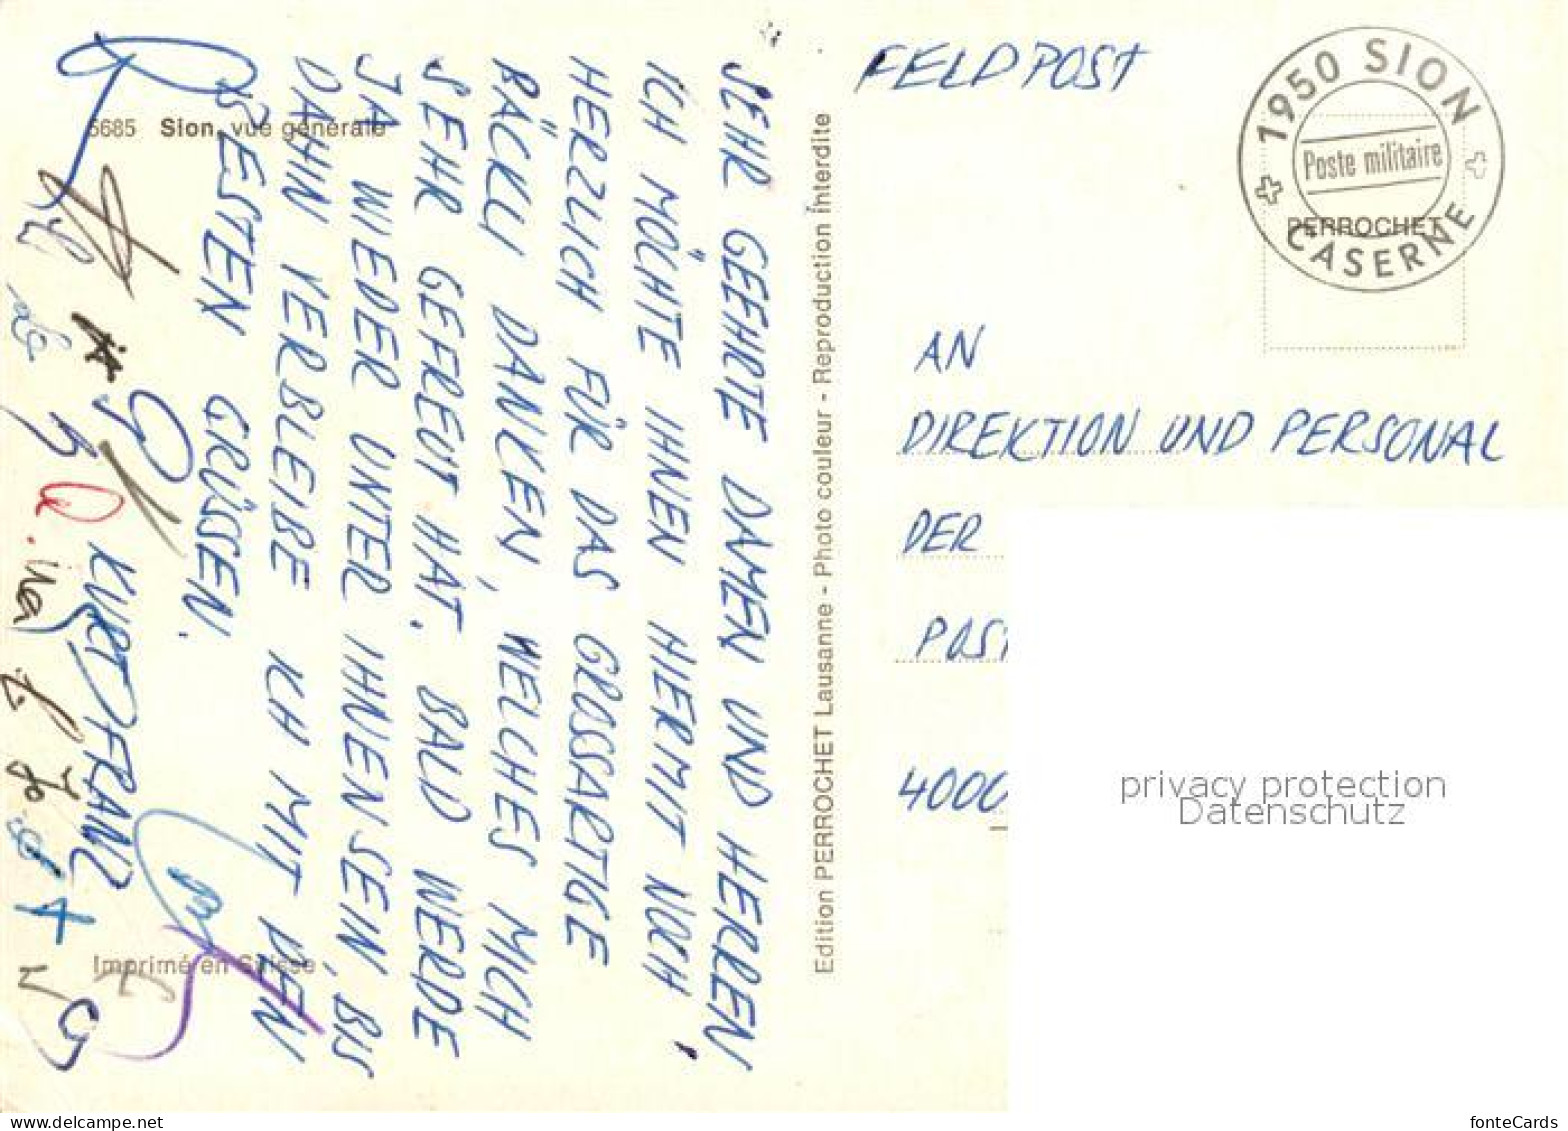 5685 Sion, vue générale
SEHR GEEHRTE DAMEN UND HERREN,
ICH MÖCHTE IHNEN HIERMIT NOCH
HERZLICH FÜR DAS GROSSARTIGE
PÄCKLI DANKEN, WELCHES MICH
SEHR GEFREUT HAT. BALD WERDE
JA WIEDER UNTER IHNEN SEIN, BIS
DAHIN VERBLEIBE ICH MIT DEN
BESTEN GRÜSSEN.
KURT FRANZ
Imprimé en Suisse
Edition PERROCHET Lausanne - Photo couleur - Reproduction interdite
FELDPOST
1950 SION
Poste militaire
CASERNE
PERROCHET
AN
DIREKTION UND PERSONAL
DER
POST
4000
privacy protection
Datenschutz
fonteCards